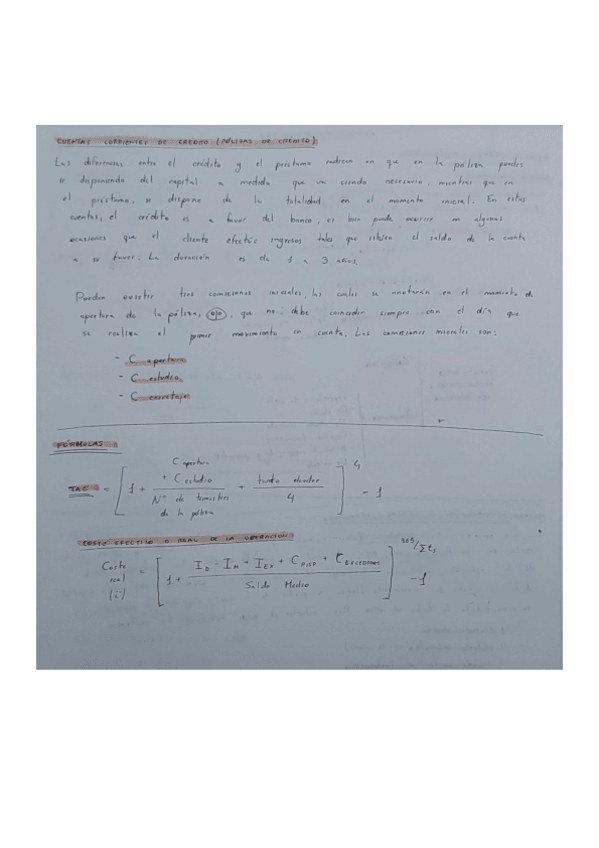 CUENTAS CORRIENTES DE CRÉDITO (PÓLIZAS DE CRÉDITO)
Las diferencias entre el crédito y el préstamo radican en que en la póliza puedes
ir disponiendo del capital a medida que va siendo necesario, mientras que en
el préstamo, se dispone de la totalidad en el momento inicial. En estas
cuentas, el crédito es a favor del banco, si bien puede ocurrir en algunas
ocasiones que el cliente efectúe ingresos tales que sitúen el saldo de la cuenta
a su favor. La duración es de 1 a 3 años.
Pueden existir tres comisiones iniciales, las cuales se anotarán en el momento de
apertura de la póliza, ojo, que no debe coincidir siempre con el día que
se realiza el primer movimiento en cuenta. Las comisiones iniciales son:
- C apertura
- C estudio
- C corretaje
FÓRMULAS
TAE = [1 + (C apertura + C estudio / Nº de trimestres de la póliza) + (tanto deudor / 4)]^4 - 1
COSTE EFECTIVO O REAL DE LA OPERACIÓN
Coste real (i') = [1 + (I_D - I_H + I_EX + C_DISP + C_EXCEDIDO) / Saldo Medio]^365/Σt - 1